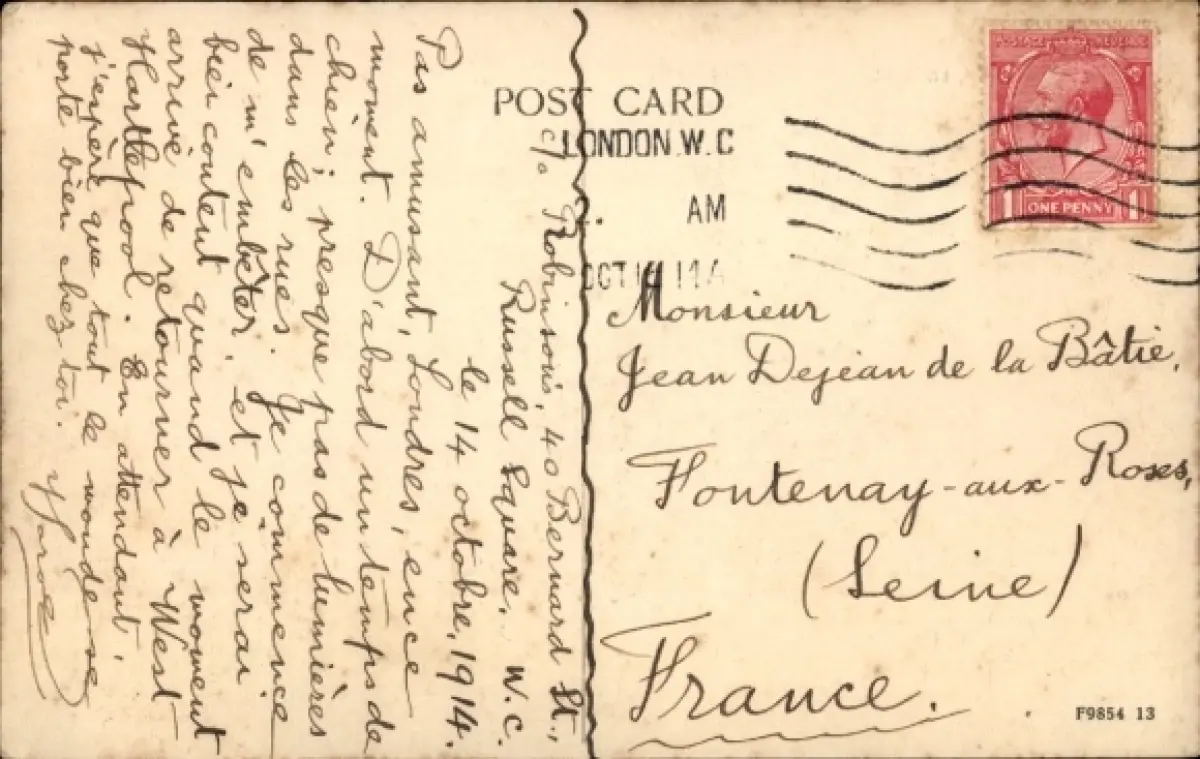 POST CARD
LONDON. W.C
AM
OCT 14
POSTAGE REVENUE
1 ONE PENNY 1
c/o Robinson's, 40 Bernard St.,
Russell Square, W.C.
le 14 octobre, 1914.
Pas amusant, Londres, en ce
moment. D'abord un temps de
chien; presque pas de lumières
dans les rues. Je commence
de m'embêter, et je serai
bien content quand le moment
arrive de retourner à West
Hartlepool. En attendant,
j'espère que tout le monde se
porte bien chez toi.
Monsieur
Jean Dejean de la Bâtie,
Fontenay-aux-Roses,
(Seine)
France.
F9854 13